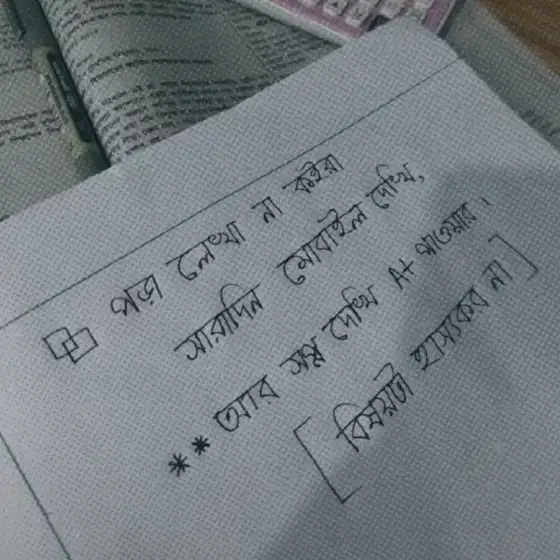 পড়া লেখা না কইরা
সারাদিন মোবাইল দেখি,
** আর সপ্ন দেখি A+ পাওয়ার।
[বিষয়টা হাস্যকর না]